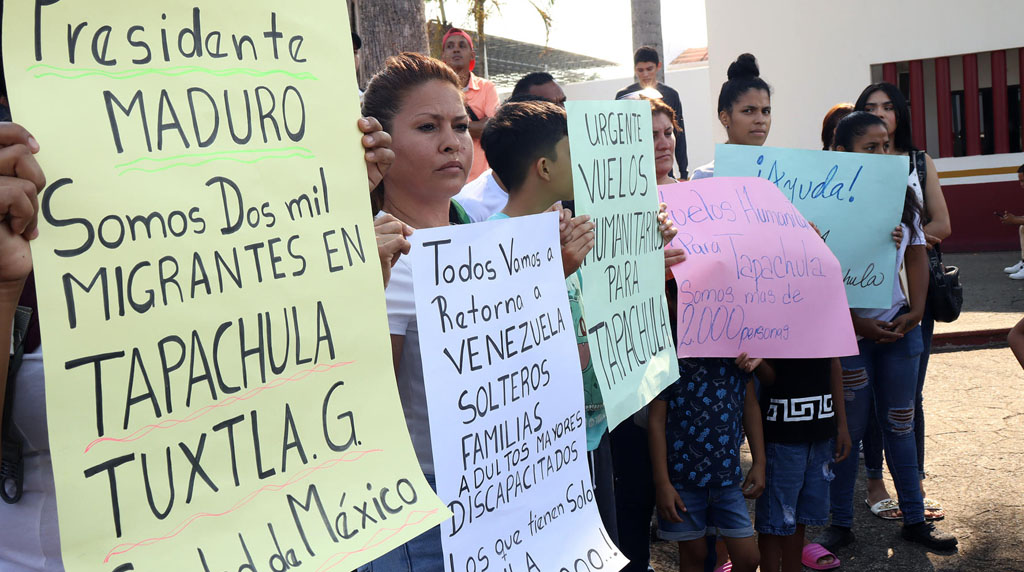 Presidente
MADURO
Somos Dos mil
MIGRANTES EN
TAPACHULA
TUXTLA.G.
Ciudad de México
Todos Vamos a
Retorna a
VENEZUELA
SOLTEROS
FAMILIAS
ADULTOS MAYORES
DISCAPACITADOS
Los que tienen Solo
URGENTE
VUELOS
HUMANITARIOS
PARA
TAPACHULA
Vuelos Humanita
Para Tapachula
Somos mas de
2.000 personas
¡Ayuda!